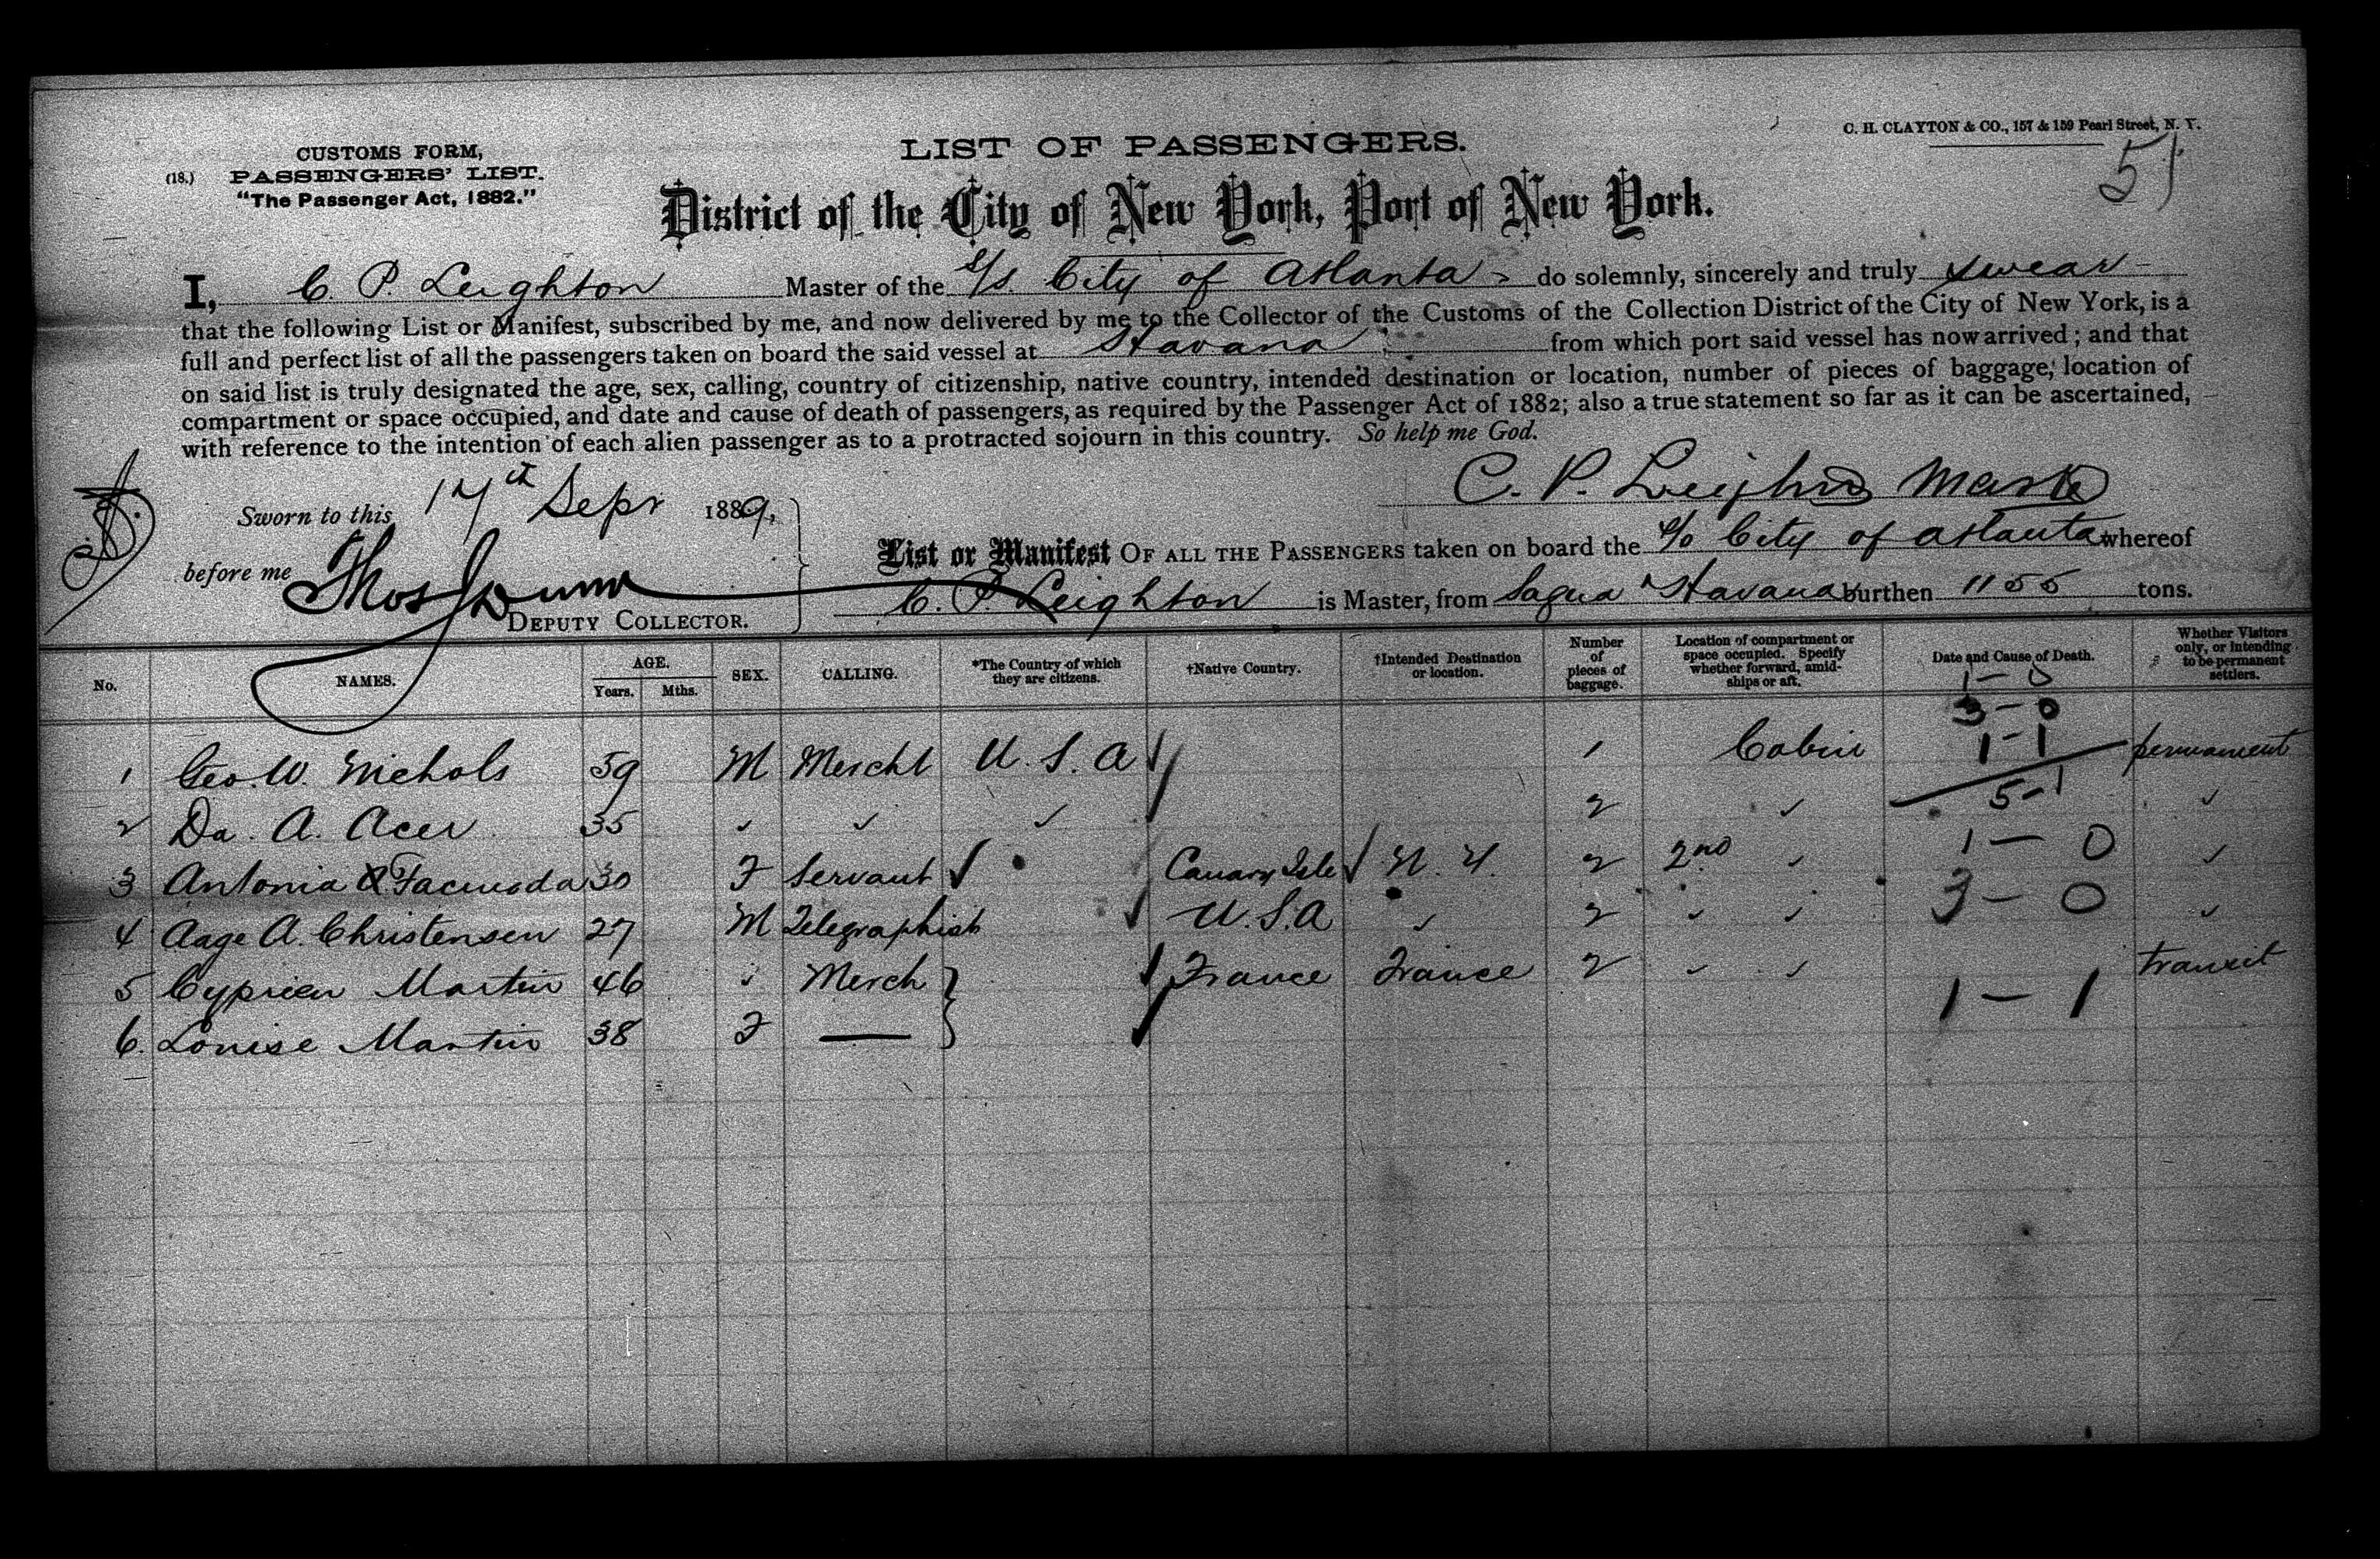 CUSTOMS FORM,
(18.) PASSENGERS' LIST.
"The Passenger Act, 1882."
LIST OF PASSENGERS.
C. H. CLAYTON & CO., 157 & 159 Pearl Street, N. Y.
51
District of the City of New York, Port of New York.
I, C. P. Leighton Master of the S/S. City of Atlanta do solemnly, sincerely and truly swear
that the following List or Manifest, subscribed by me, and now delivered by me to the Collector of the Customs of the Collection District of the City of New York, is a
full and perfect list of all the passengers taken on board the said vessel at Havana from which port said vessel has now arrived; and that
on said list is truly designated the age, sex, calling, country of citizenship, native country, intended destination or location, number of pieces of baggage, location of
compartment or space occupied, and date and cause of death of passengers, as required by the Passenger Act of 1882; also a true statement so far as it can be ascertained,
with reference to the intention of each alien passenger as to a protracted sojourn in this country. So help me God.
C. P. Leighton Master
Sworn to this 17th Sept 1889,
before me Thos Dunn
DEPUTY COLLECTOR.
List or Manifest OF ALL THE PASSENGERS taken on board the S/S City of Atlanta whereof
C. P. Leighton is Master, from Sagua Havana burthen 1155 tons.
No. NAMES. AGE. Years. Mths. SEX. CALLING. *The Country of which they are citizens. †Native Country. †Intended Destination or location. Number of pieces of baggage. Location of compartment or space occupied. Specify whether forward, amidships or aft. Date and Cause of Death. Whether Visitors only, or intending to be permanent settlers.
1 - 0
3 - 0
1 Geo. W. Nichols 59 M Mercht U. S. A 1 Cabin 1 - 1 permanent
2 Da. A. Acer 35 ✓ ✓ ✓ 2 ✓ 5 - 1 ✓
3 Antonia Facunda 30 F Servant ✓ Canary Isle ✓ N. Y. 2 2nd ✓ 1 - 0 ✓
4 Aage A. Christensen 27 M Telegraphist ✓ U.S.A ✓ 2 ✓ ✓ 3 - 0 ✓
5 Cyprien Martin 46 ✓ Merch } ✓ France France 2 ✓ ✓ transit
6. Louise Martin 38 F — ✓ 1 - 1